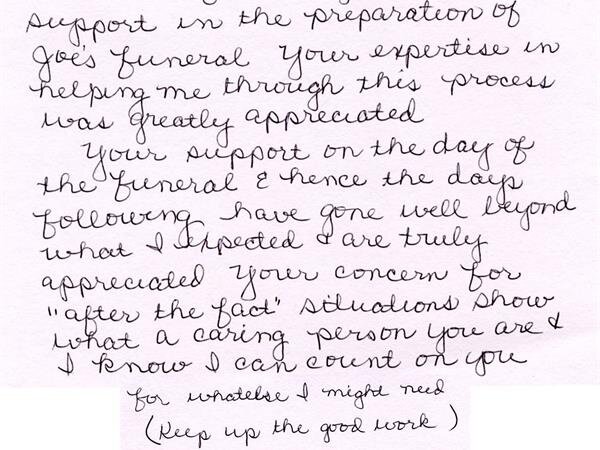 support in the preparation of
Joe's funeral Your expertise in
helping me through this process
was greatly appreciated
Your support on the day of
the funeral & hence the days
following have gone well beyond
what I expected & are truly
appreciated Your concern for
"after the fact" situations show
what a caring person you are &
I know I can count on you
for whatelse I might need
(Keep up the good work)